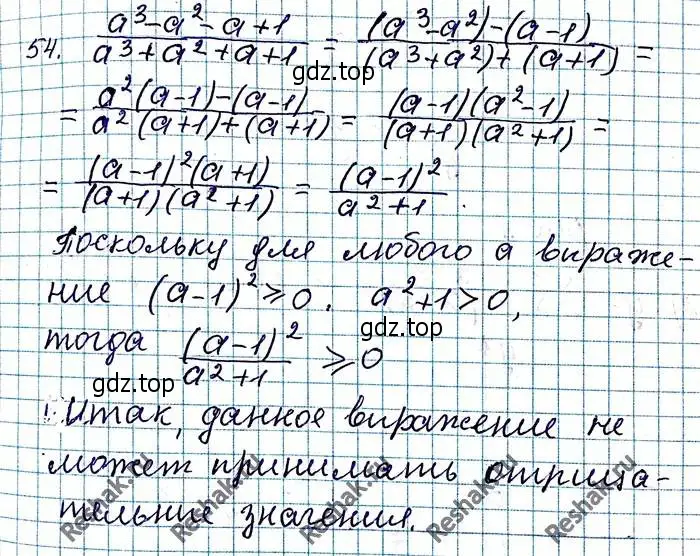 54. \frac{a^3-a^2-a+1}{a^3+a^2+a+1} = \frac{(a^3-a^2)-(a-1)}{(a^3+a^2)+(a+1)} =
gdz.top
= \frac{a^2(a-1)-(a-1)}{a^2(a+1)+(a+1)} = \frac{(a-1)(a^2-1)}{(a+1)(a^2+1)} =
= \frac{(a-1)^2(a+1)}{(a+1)(a^2+1)} = \frac{(a-1)^2}{a^2+1}.
Поскольку для любого a выраже-
ние (a-1)^2 ⩾ 0, a^2+1 > 0,
gdz.top
тогда \frac{(a-1)^2}{a^2+1} ⩾ 0
gdz.top
Итак, данное выражение не
может принимать отрица-
тельные значения.
Reshak.ru
Reshak.ru
Reshak.ru
Reshak.ru
Reshak.ru